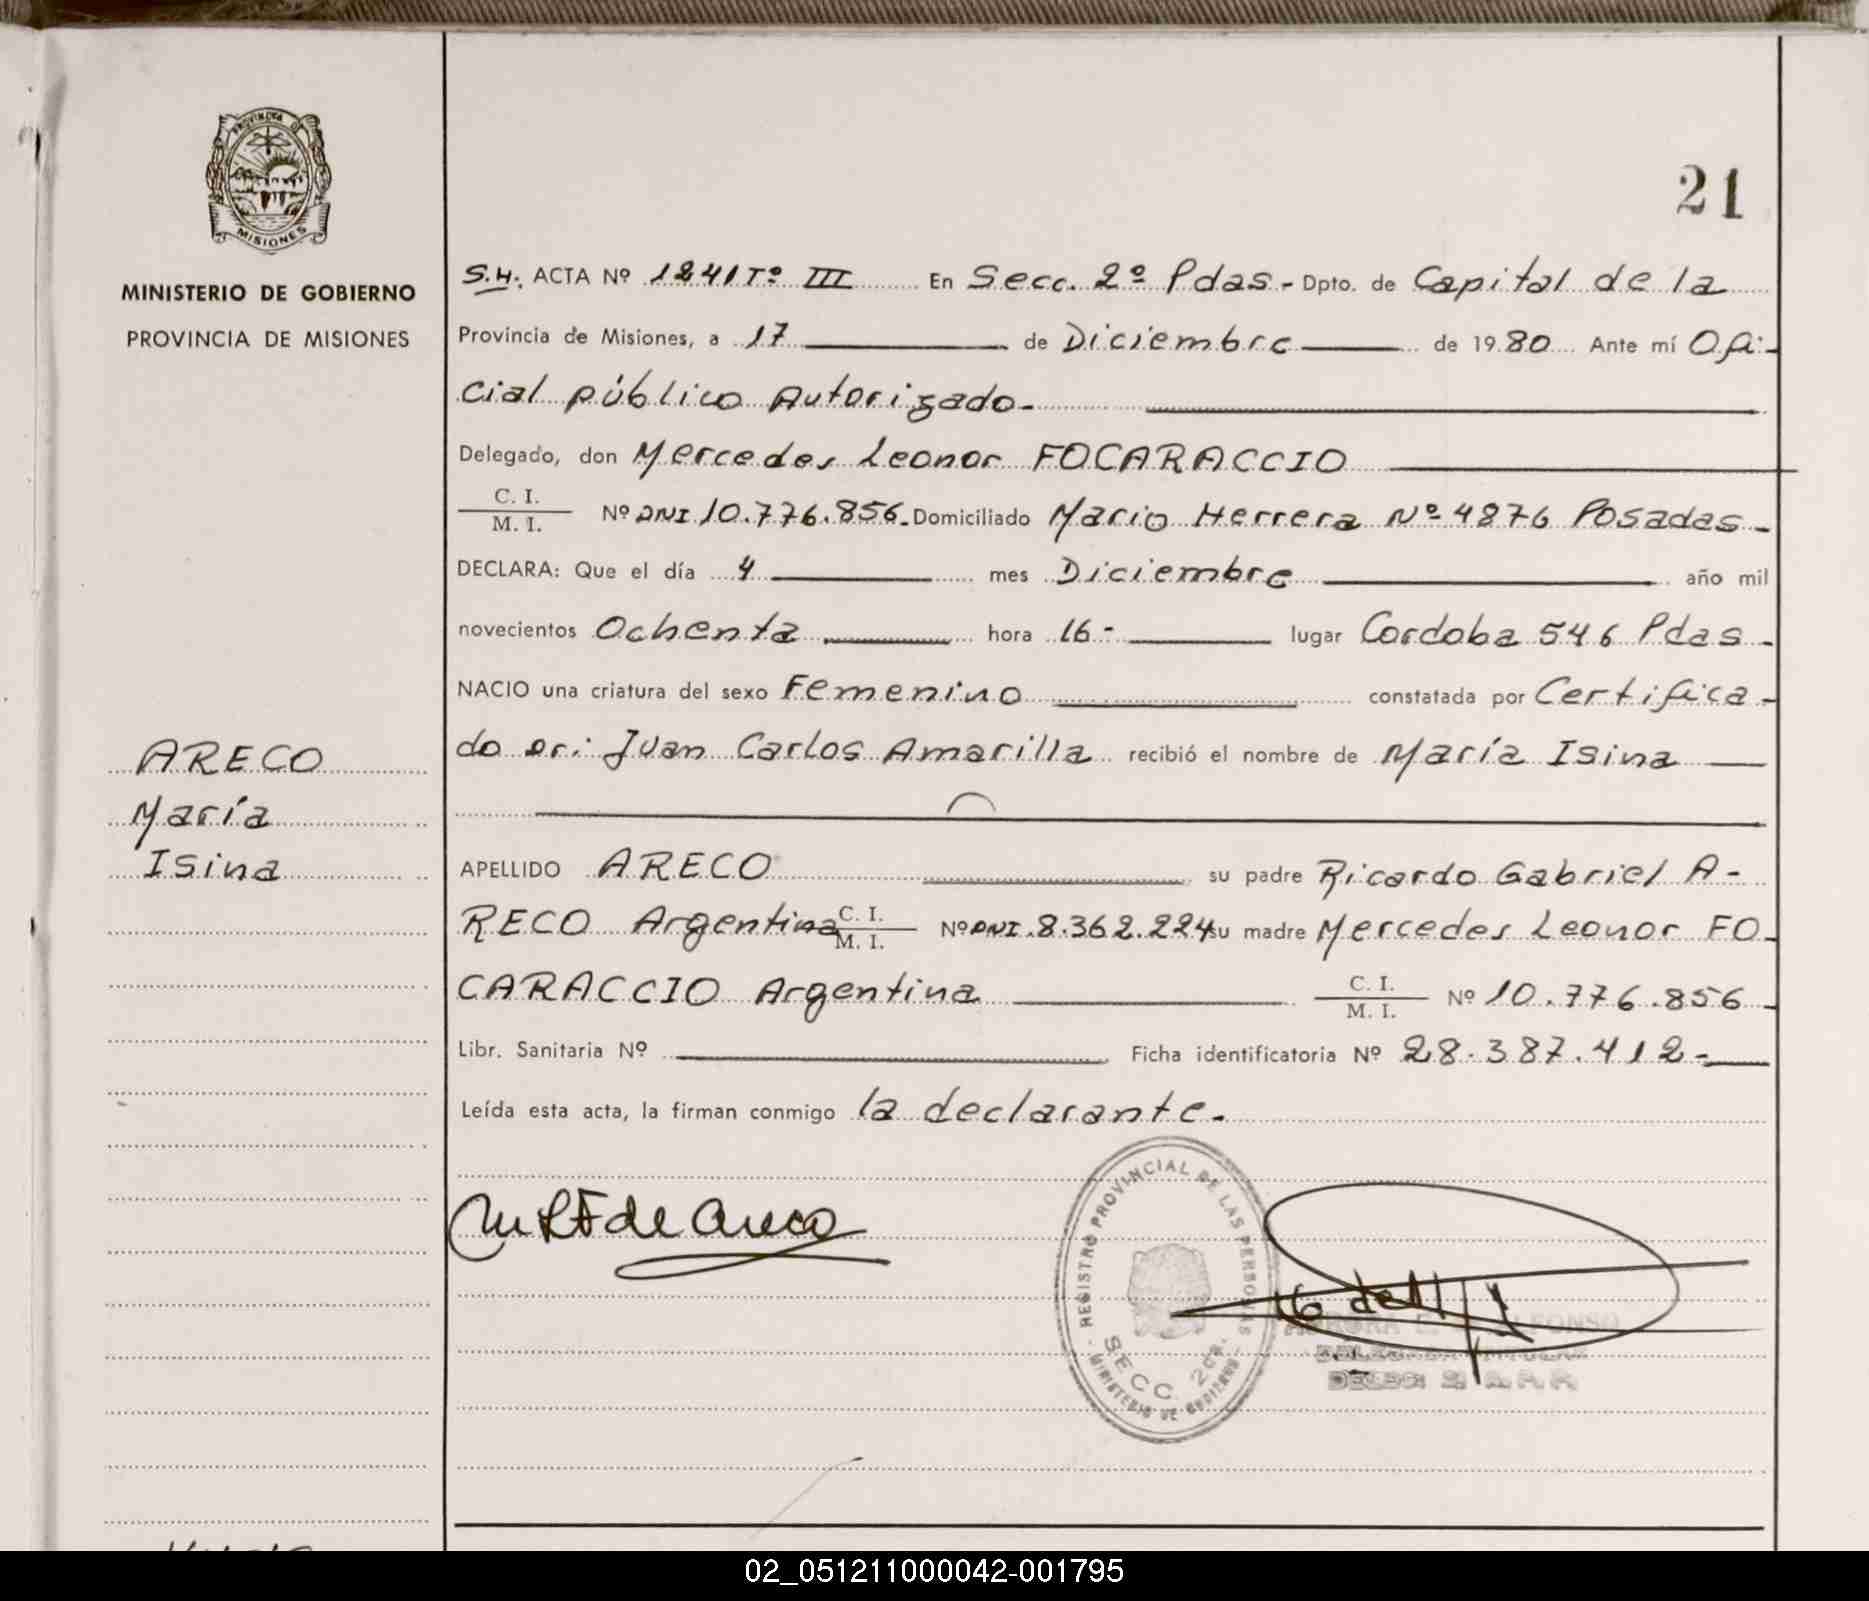 PROVINCIA DE
MISIONES
MINISTERIO DE GOBIERNO
PROVINCIA DE MISIONES
ARECO
María
Isina
21
S.H. ACTA Nº 1241 Tº III En Secc. 2º Pdas.- Dpto. de Capital de la
Provincia de Misiones, a 17 de Diciembre de 1980 Ante mí Ofi-
cial público Autorizado-
Delegado, don Mercedes Leonor FOCARACCIO
C. I.
M. I. Nº DNI 10.776.856. Domiciliado Mario Herrera Nº 4876 Posadas-
DECLARA: Que el día 4 mes Diciembre año mil
novecientos Ochenta hora 16- lugar Cordoba 546 Pdas-
NACIO una criatura del sexo Femenino constatada por Certifica-
do Dr: Juan Carlos Amarilla recibió el nombre de María Isina
APELLIDO ARECO su padre Ricardo Gabriel A-
RECO Argentina C. I.
M. I. Nº DNI 8.362.224 su madre Mercedes Leonor FO-
CARACCIO Argentina C. I.
M. I. Nº 10.776.856-
Libr. Sanitaria Nº Ficha identificatoria Nº 28.387.412-
Leída esta acta, la firman conmigo la declarante.-
de Areco
REGISTRO PROVINCIAL DE LAS PERSONAS
SECC. 2da.
MINISTERIO DE GOBIERNO
02_051211000042-001795